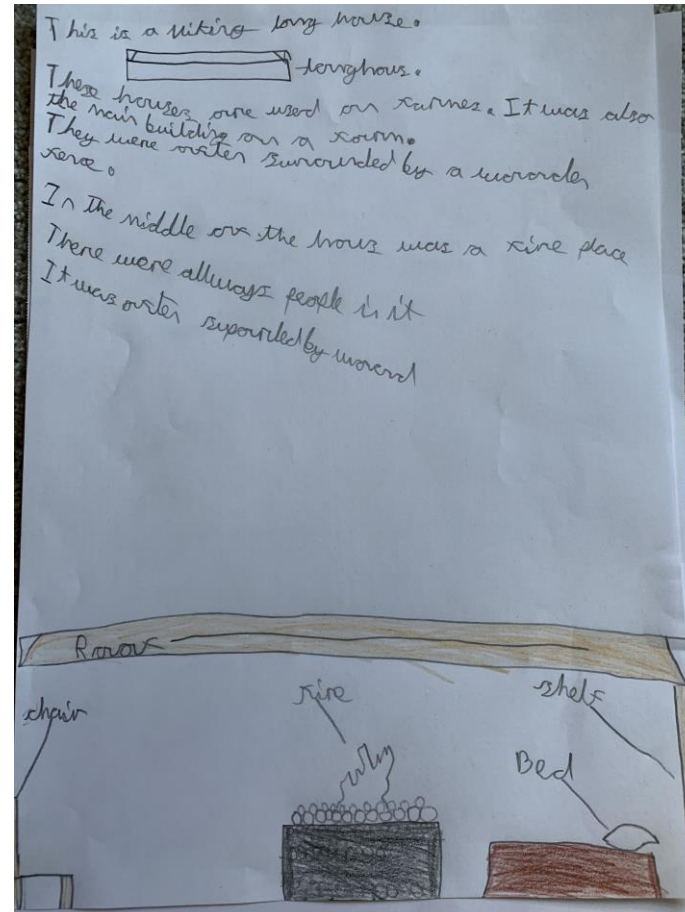 This is a viking long house.
longhous.
These houses are used on farmes. It was also
the main building on a farm.
They were often surrounded by a wooden
fence.
In the middle of the hous was a fire place
There were allways people in it
It was often surounded by wood
Rooof
chair
fire
shelf
Bed